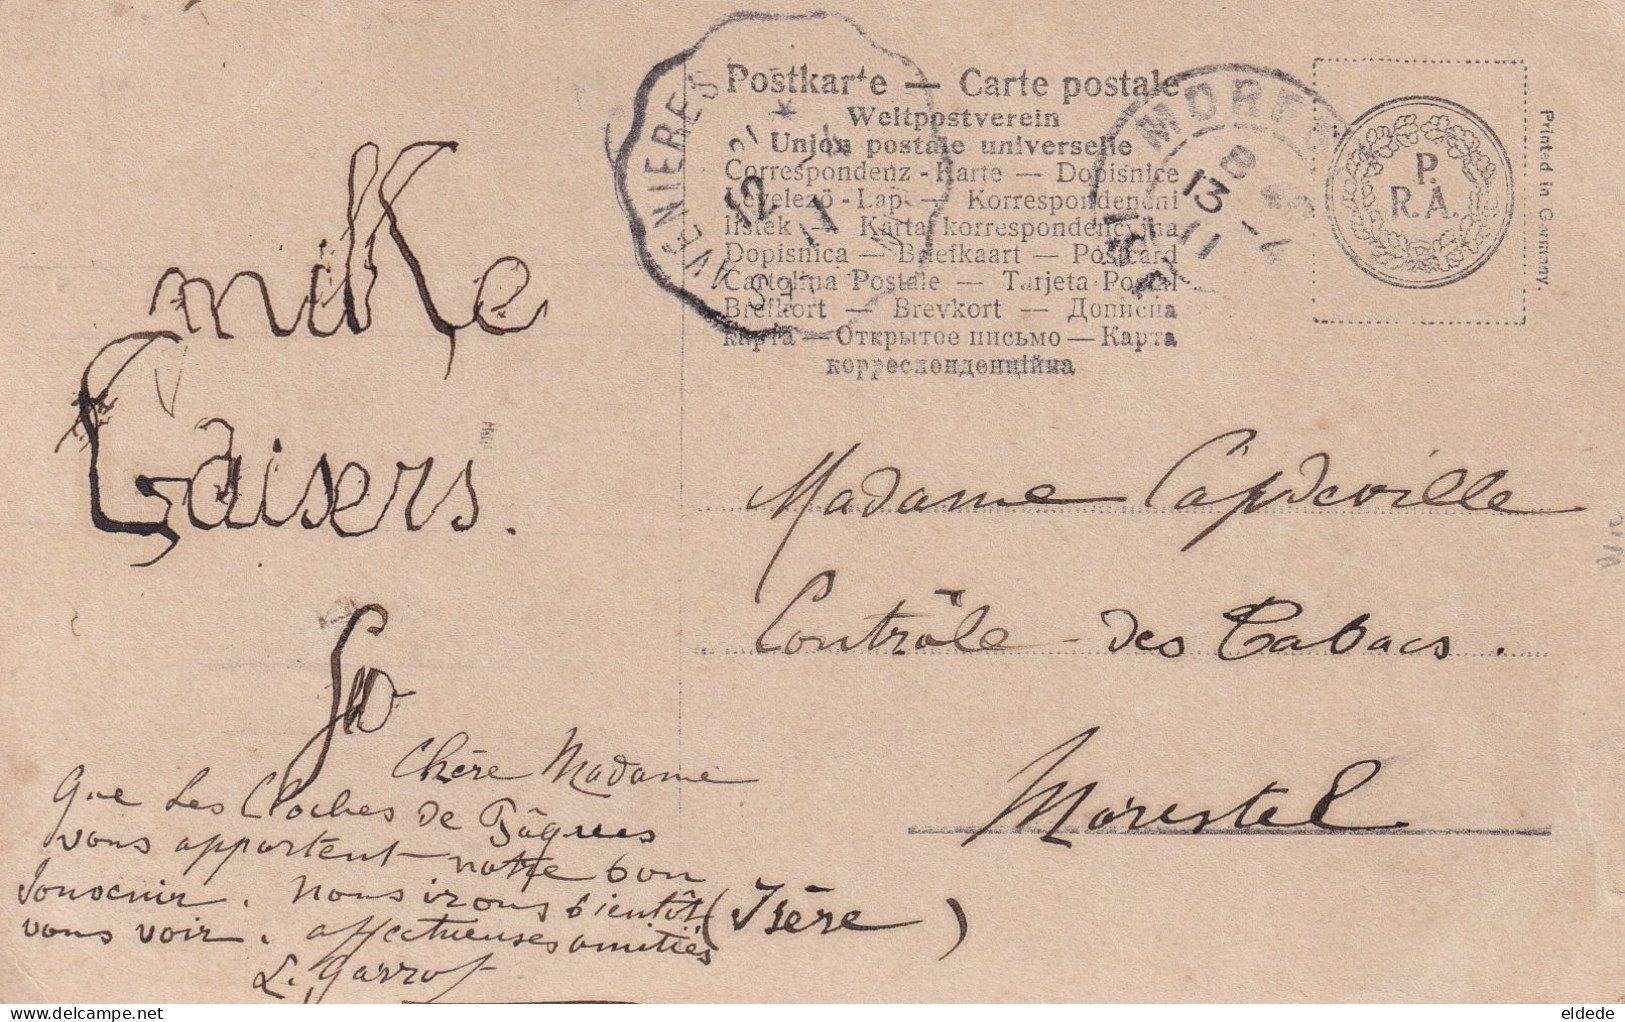 Postkarte — Carte postale
Weltpostverein
Union postale universelle
Correspondenz-Karte — Dopisnice
Levelező-Lap — Korrespondenční
lístek — Karta korrespondencyjna
Dopisnica — Briefkaart — Postcard
Cartolina Postale — Tarjeta Postal
Brefkort — Brevkort — Дописна
карта — Открытое письмо — Карта
корреспонденційна
MORES
8
13 - 4
11
AVENIERES
12
P.
R. A.
Printed in Germany.
miKe
Gaisers.
Madame Capdeville
Contrôle des Tabacs.
Morestel
(Isère)
Chère Madame
Que les Cloches de Pâques
vous apportent notre bon
souvenir. Nous irons bientôt
vous voir. affectueuses amitiés
L. Garrot
eldede
delcampe.net